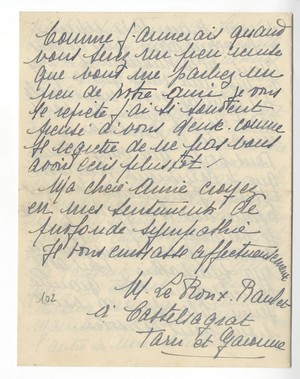 Comme j'aimerais quand
vous serez un peu remise
que vous me parliez un
peu de votre mari je vous
le répète j'ai si souvent
pensé à vous deux comme
je regrette de ne pas vous
avoir écrit plus tôt!
Ma chère Annie croyez
en mes sentiments de
profonde sympathie
Je vous embrasse affectueusement
M. Le Roux.
à Castelsagrat
Tarn et Garonne
102